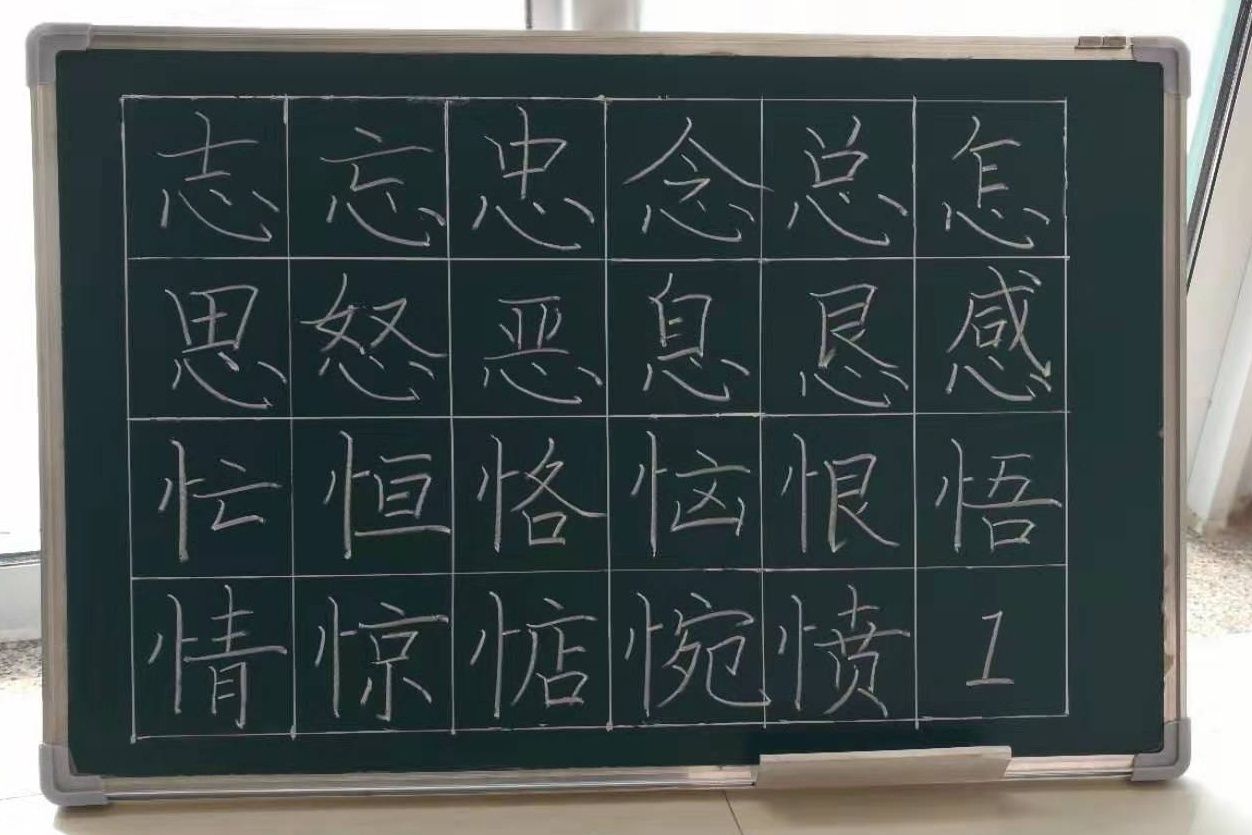 志忘忠念总怎
思怒恶息恳感
忙恒恪恼恨悟
情惊惦惋愤1